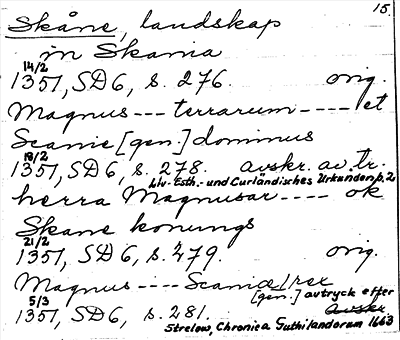 15.
Skåne, landskap
in Skania
14/2
1351, SD6, s. 276. orig.
Magnus --- terrarum ---- et
Scanie [gen.] dominus
19/2
1351, SD6, s. 278. avskr. av tr.
Liv- Esth.- und Curländisches Urkundenb. 2
herra Magnusar ---- ok
Skane konungs
21/2
1351, SD6, s. 279. orig.
Magnus ---- Scanie rex
[gen.] avtryck efter
5/3
1351, SD6, s. 281. avskr.
Strelow, Chronica Guthilandorum 1663